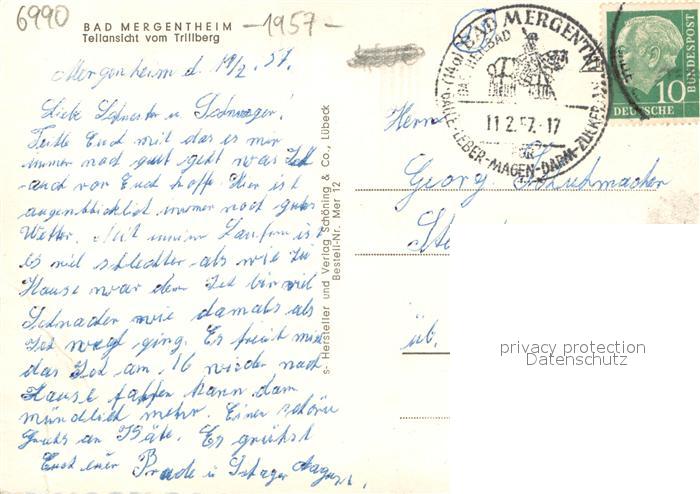 6990
BAD MERGENTHEIM
Teilansicht vom Trillberg
-1957-
Mergenheim d. 10/2. 57.
Liebe Schwester u Schwager!
Teille Euch mit das es mir
immer noch gut geht was Ich
auch von Euch hoffe. Hier ist
augenblicklich immer noch gutes
Wetter. Mit meinem Laufen ist
es viel schlechter als wie zu
Hause war denn Ich bin viel
Schwacher wie damals als
Ich weg ging. Es freit mich
das Ich am 16 wieder nach
Hause fahren kann dann
mündlich mehr. Einen schönen
Gruß an Käte. Es grüßt
Euch euer Bruder u Schwager August.
s- Hersteller und Verlag Schöning & Co., Lübeck
Bestell-Nr. Mer 12
(14a) BAD MERGENTHEIM
DAS HEILBAD
11.2.57.-17
FÜR
GALLE-LEBER-MAGEN-DARM-ZUCKER
10
DEUTSCHE
BUNDESPOST
Herrn
Georg Schuhmacher
Ste
üb.
privacy protection
Datenschutz